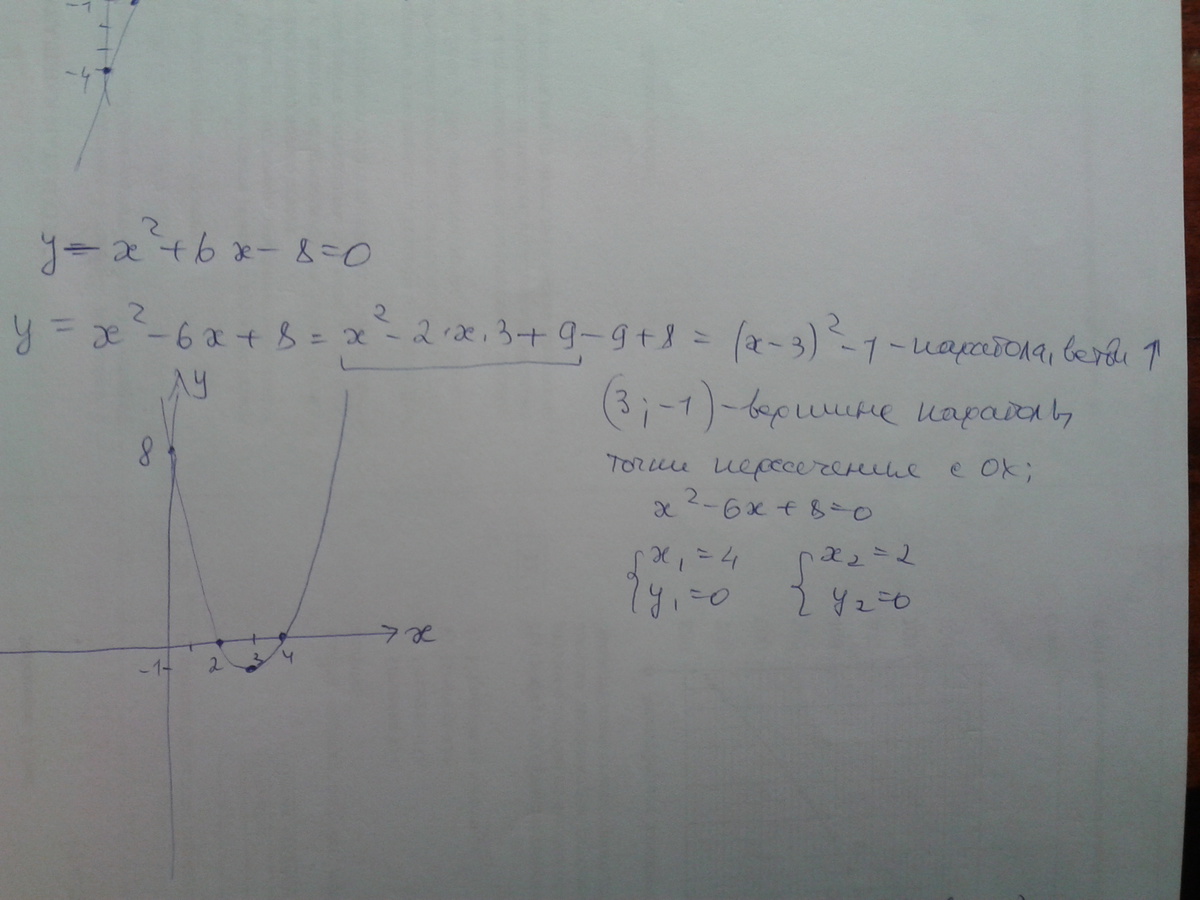 -1
-4
y = - x² + 6x - 8 = 0
y = x² - 6x + 8 = x² - 2·x·3 + 9 - 9 + 8 = (x-3)² - 1 - парабола, ветви ↑
(3; -1) - вершина параболы
точки пересечения с OX;
x² - 6x + 8 = 0
{ x₁ = 4 { x₂ = 2
{ y₁ = 0 { y₂ = 0
y
8
x
-1 2 3 4